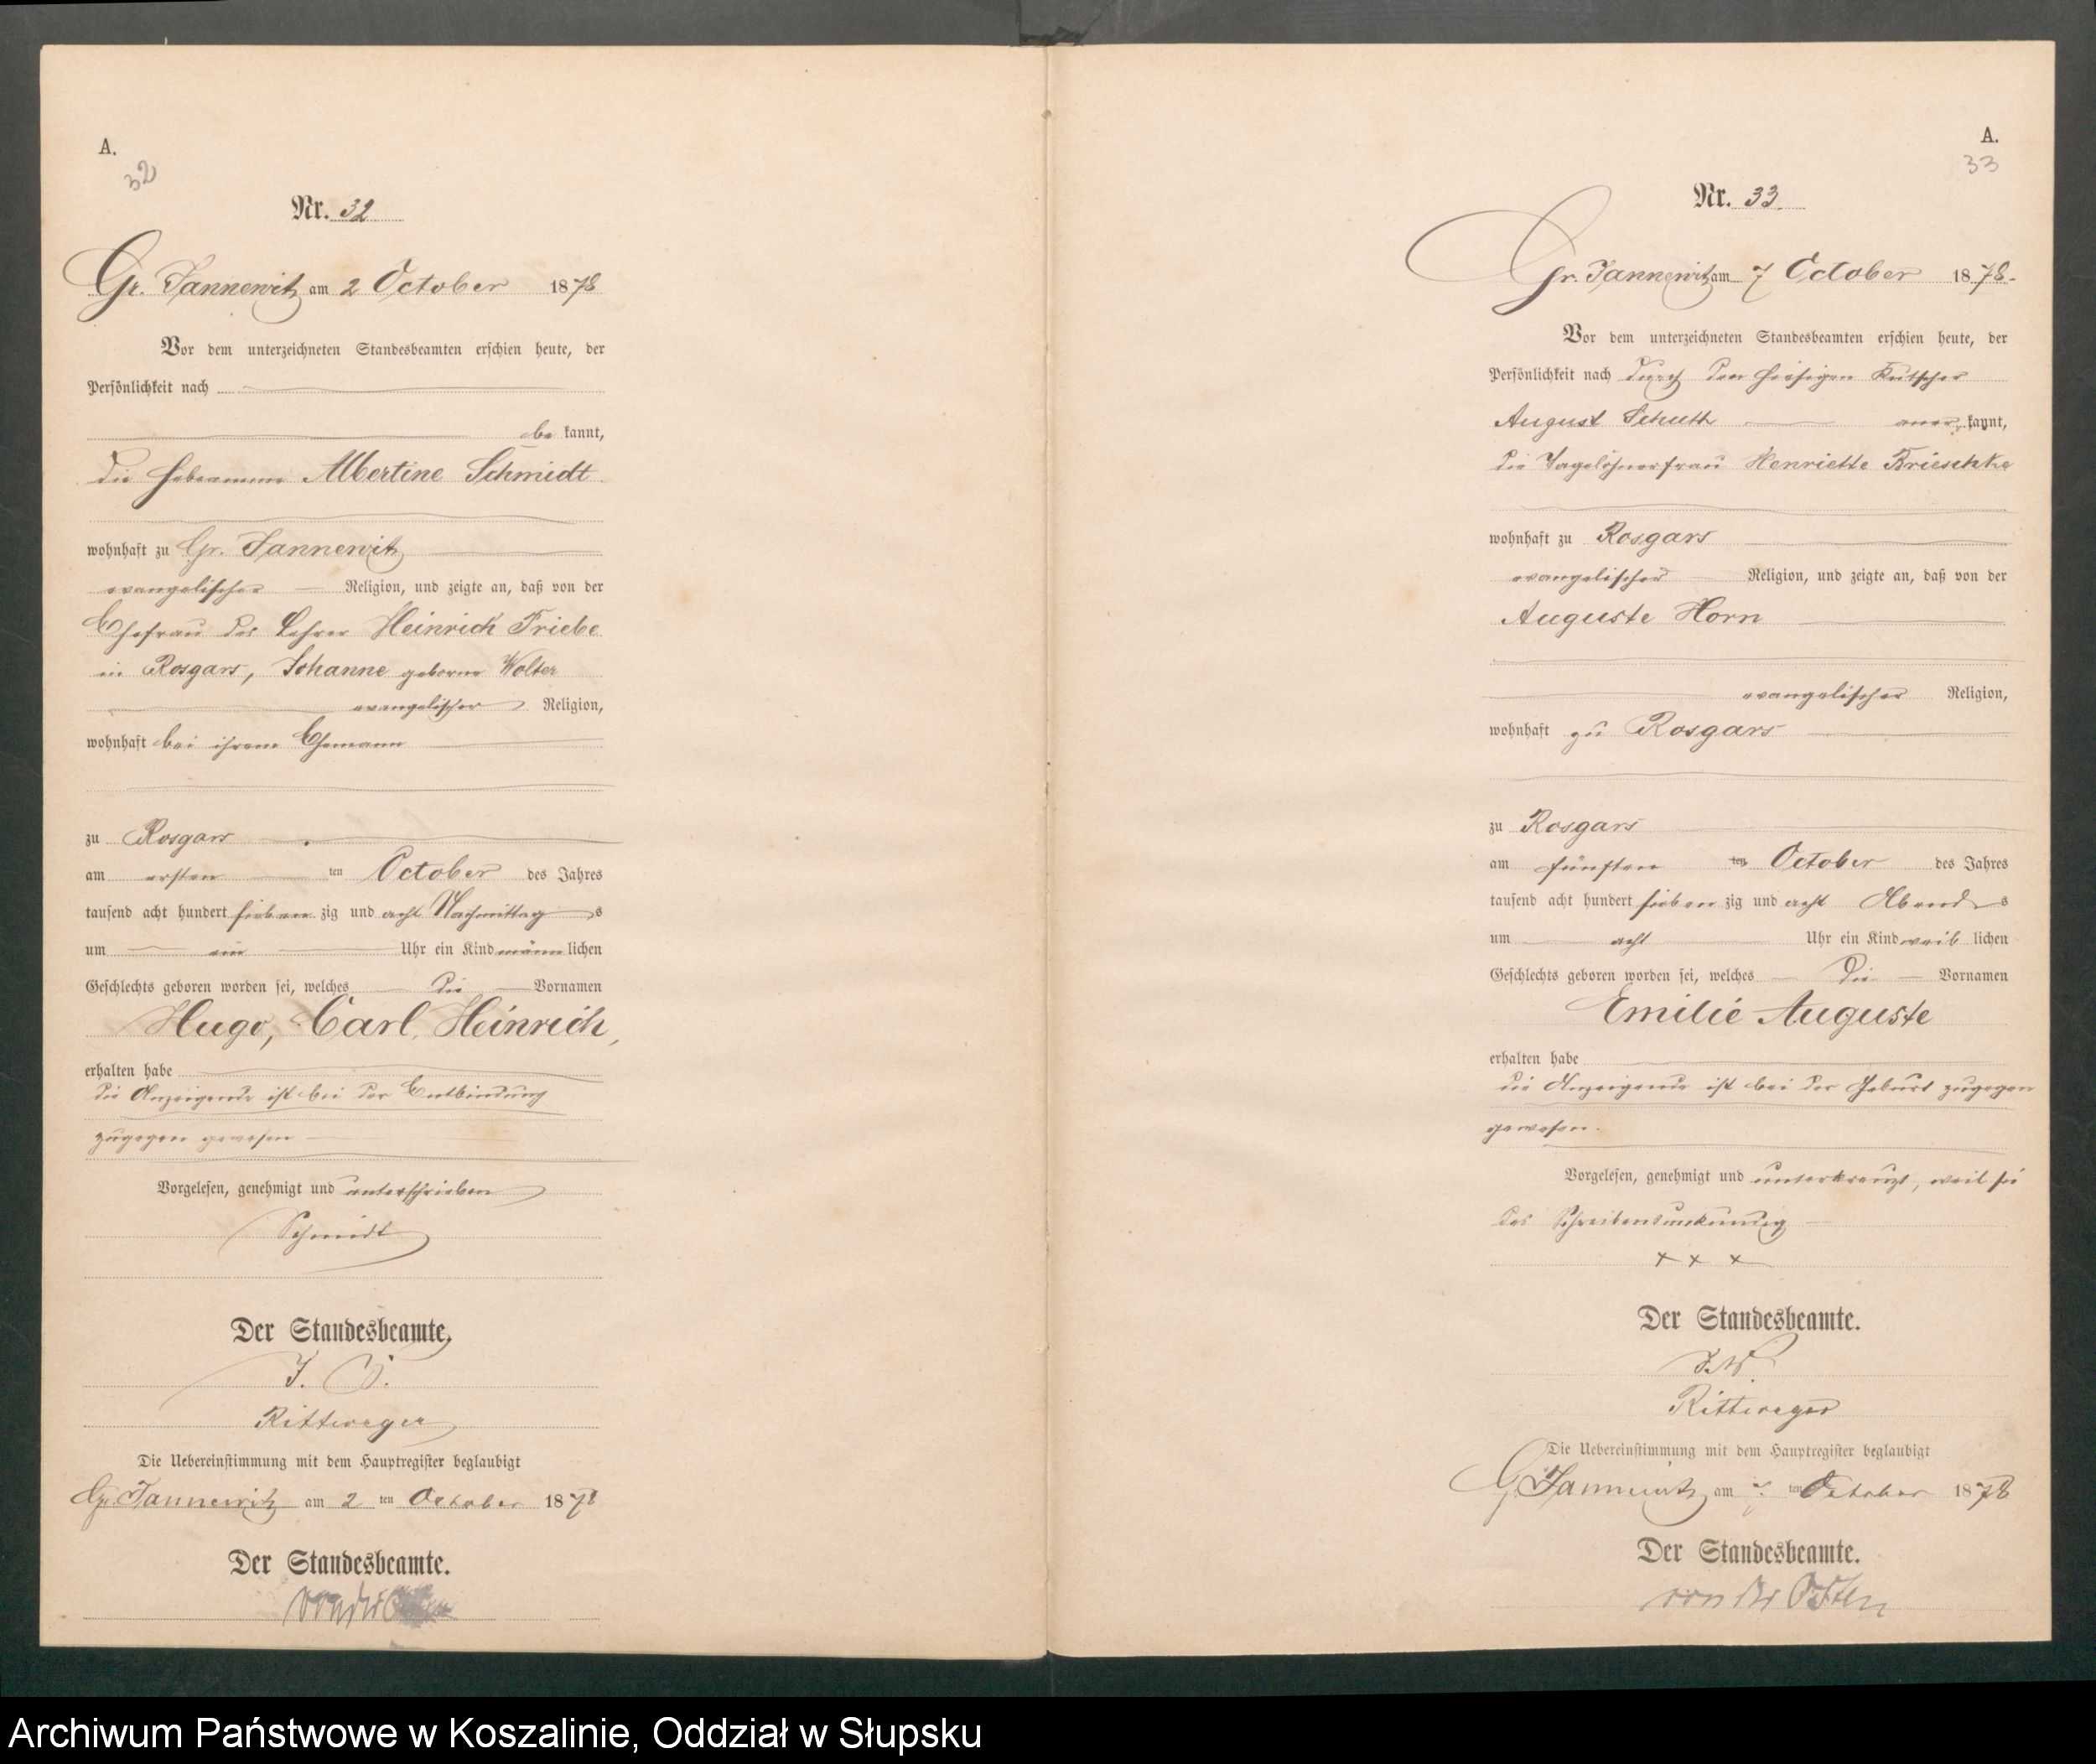 A.
32
Nr. 32
Gr. Jannewitz am 2 October 1878
Vor dem unterzeichneten Standesbeamten erschien heute, der
Persönlichkeit nach
be kannt,
die Hebeamme Albertine Schmidt
wohnhaft zu Gr. Jannewitz
evangelischer Religion, und zeigte an, daß von der
Ehefrau des Lehrer Heinrich Friebe
in Rosgars, Johanne geborne Wolter
evangelischer Religion,
wohnhaft bei ihrem Ehemann
zu Rosgars
am ersten ten October des Jahres
tausend acht hundert sieben zig und acht Nachmittag s
um ein Uhr ein Kind männ lichen
Geschlechts geboren worden sei, welches die Vornamen
Hugo, Carl, Heinrich,
erhalten habe
die Anzeigende ist bei der Entbindung
zugegen gewesen
Vorgelesen, genehmigt und unterschrieben
Schmidt
Der Standesbeamte,
J. V.
Rittweger
Die Uebereinstimmung mit dem Hauptregister beglaubigt
Gr. Jannewitz am 2 ten October 1878
Der Standesbeamte.
von der
A.
33
Nr. 33.
Gr. Jannewitz am 7 October 1878.
Vor dem unterzeichneten Standesbeamten erschien heute, der
Persönlichkeit nach durch den hiesigen Kutscher
August Schutt aner kannt,
die Tagelöhnerfrau Henriette Brieschke
wohnhaft zu Rosgars
evangelischer Religion, und zeigte an, daß von der
Auguste Horn
evangelischer Religion,
wohnhaft zu Rosgars
zu Rosgars
am fünften ten October des Jahres
tausend acht hundert sieben zig und acht Abend s
um acht Uhr ein Kind weib lichen
Geschlechts geboren worden sei, welches die Vornamen
Emilie Auguste
erhalten habe
die Anzeigende ist bei der Geburt zugegen
gewesen.
Vorgelesen, genehmigt und unterkreuzt, weil sie
des Schreibens unkundig
x x x
Der Standesbeamte.
J. V.
Rittweger
Die Uebereinstimmung mit dem Hauptregister beglaubigt
G. Jannewitz am 7. ten October 1878
Der Standesbeamte.
von der Osten
Archiwum Państwowe w Koszalinie, Oddział w Słupsku